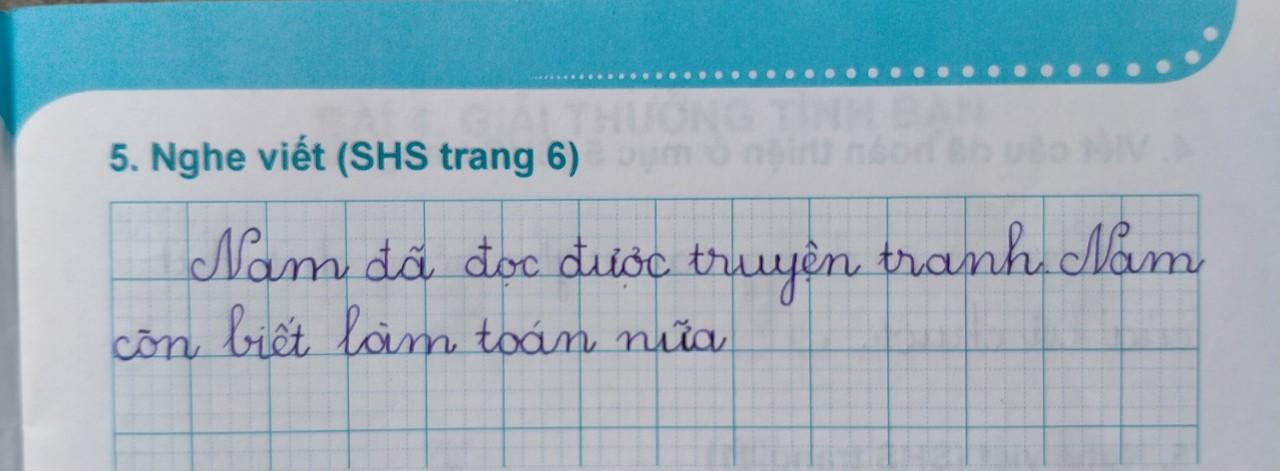 5. Nghe viết (SHS trang 6)
Nam đã đọc được truyện tranh. Nam
còn biết làm toán nữa